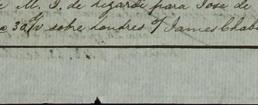 M. J. de Legarde para José de
30 d/v sobre Londres c/ James Chab